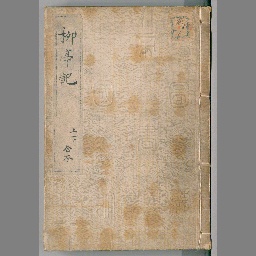 柳亭記
上下
合本